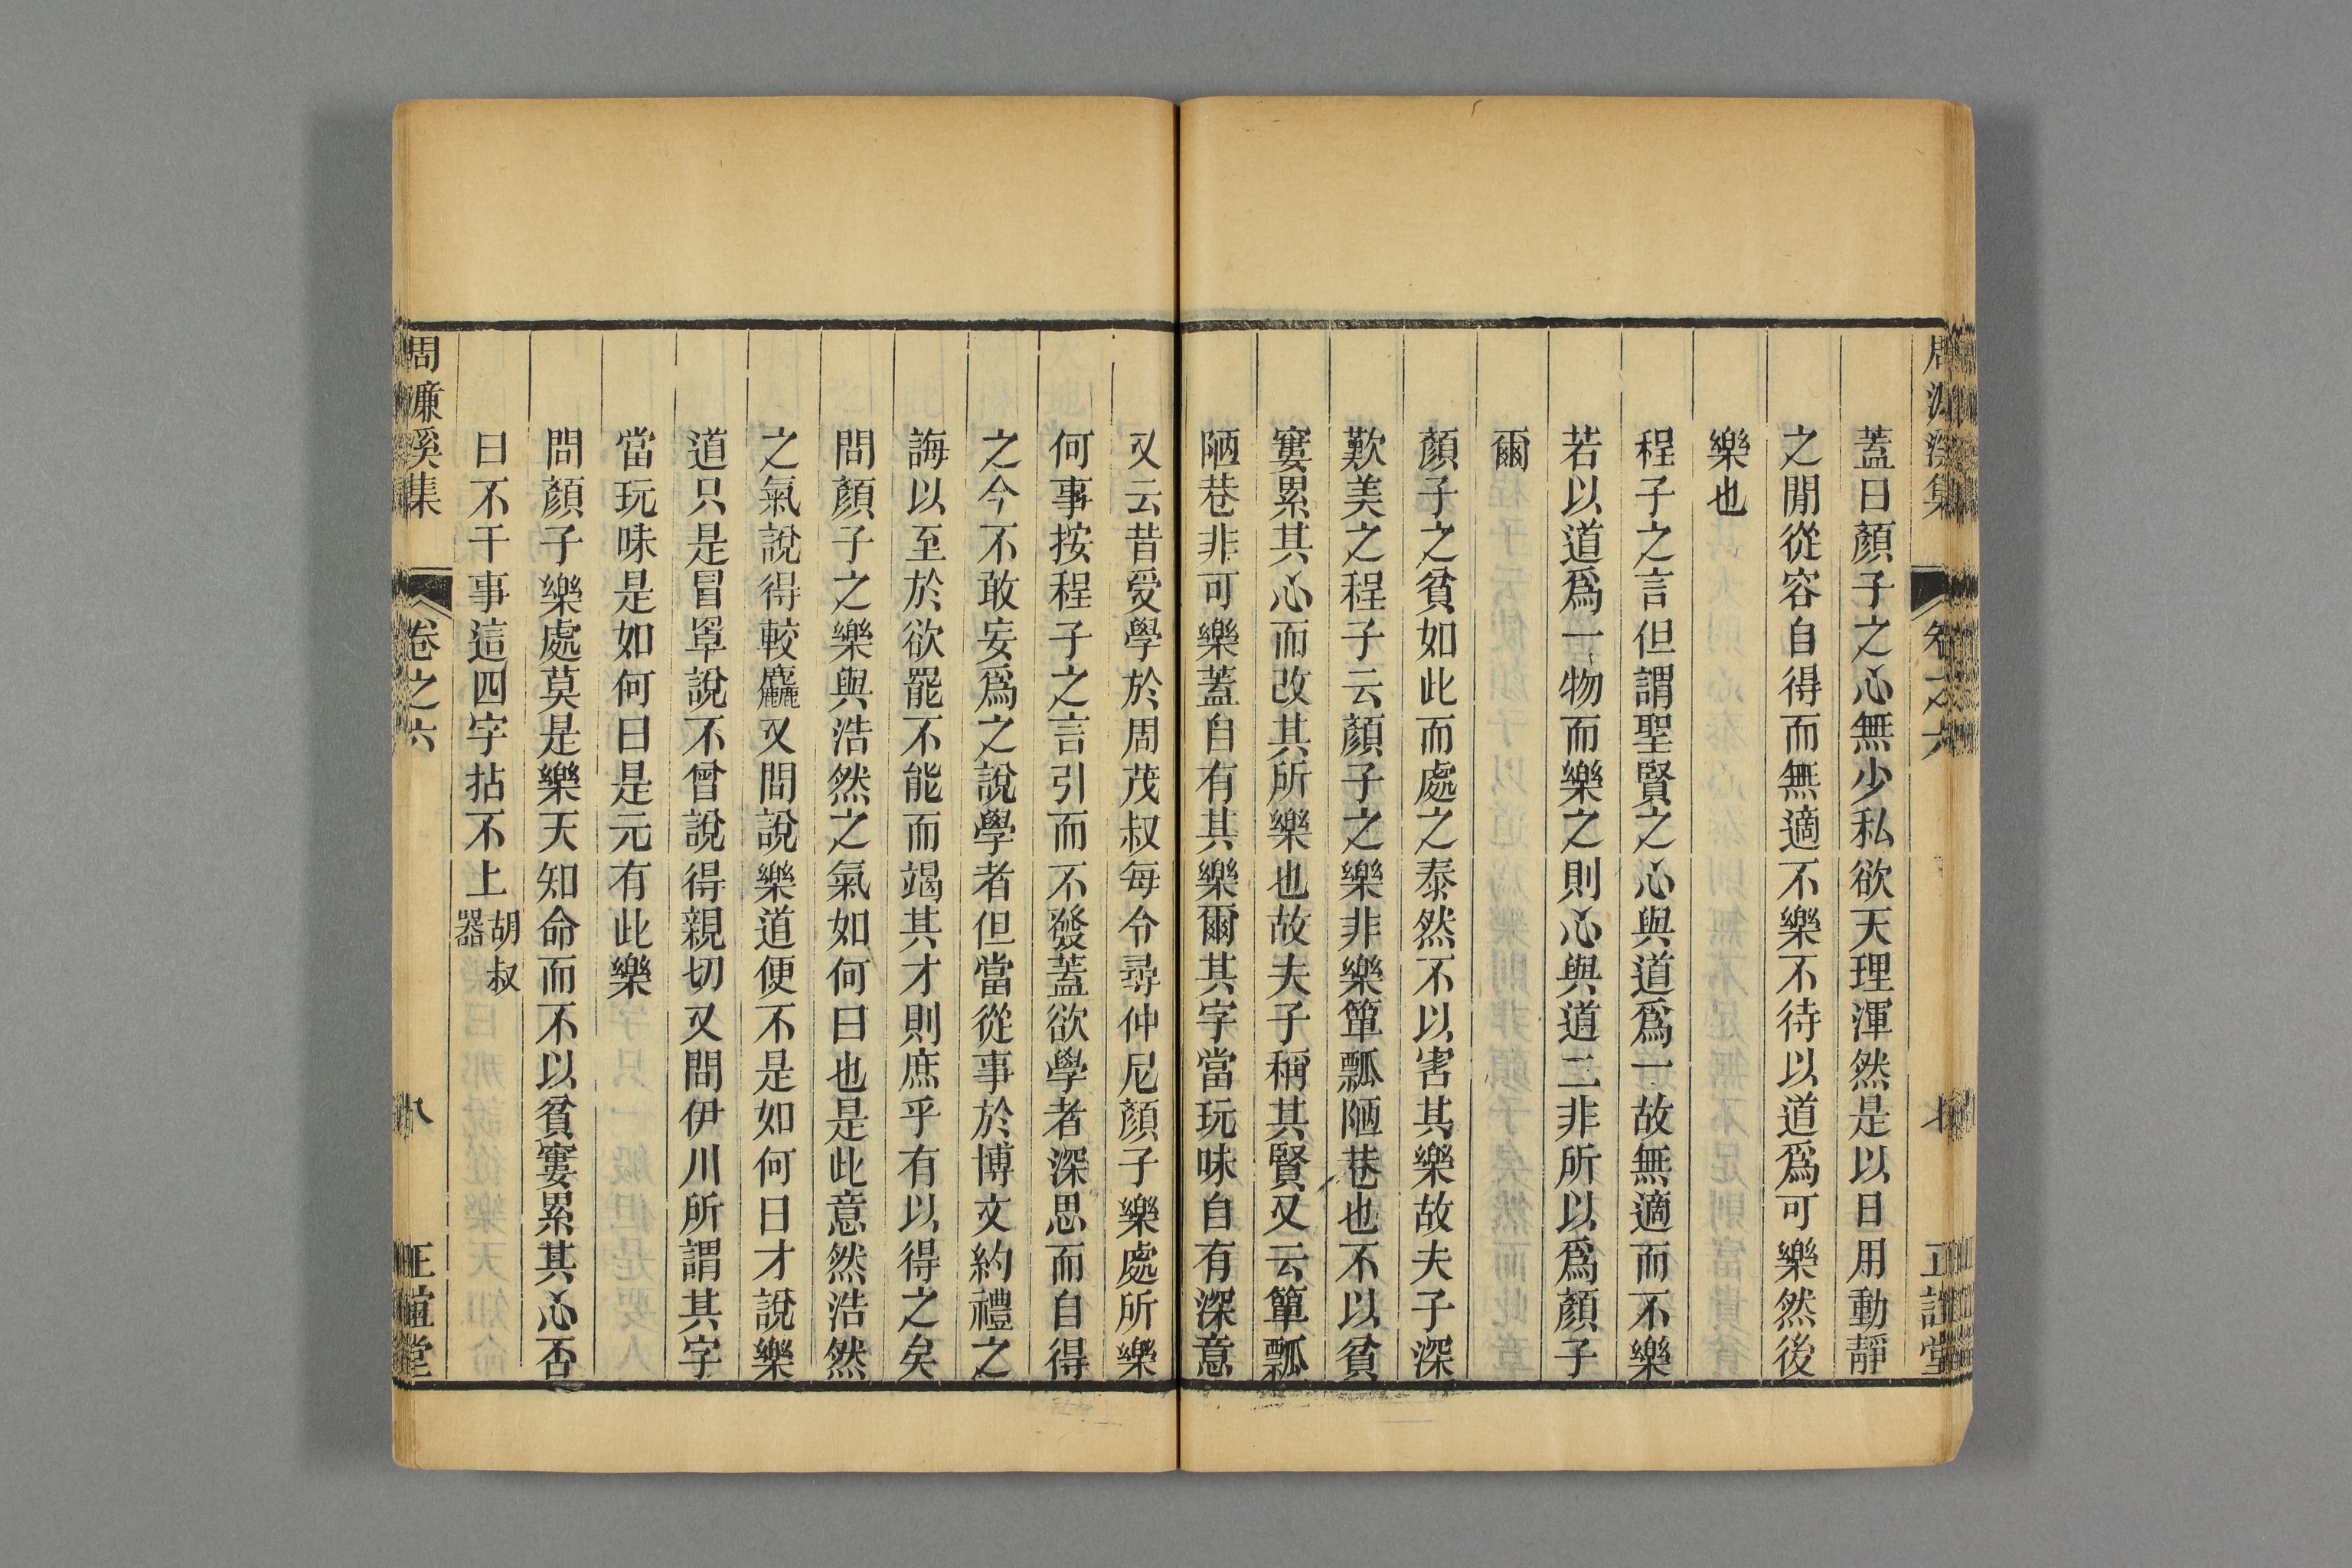 周濂溪集 卷之六 七 正誼堂
蓋曰顏子之心無少私欲天理渾然是以日用動靜
之閒從容自得而無適不樂不待以道爲可樂然後
樂也
程子之言但謂聖賢之心與道爲一故無適而不樂
若以道爲一物而樂之則心與道二非所以爲顏子
爾
顏子之貧如此而處之泰然不以害其樂故夫子深
歎美之程子云顏子之樂非樂簞瓢陋巷也不以貧
窶累其心而改其所樂也故夫子稱其賢又云簞瓢
陋巷非可樂蓋自有其樂爾其字當玩味自有深意
又云昔受學於周茂叔每令尋仲尼顏子樂處所樂
何事按程子之言引而不發蓋欲學者深思而自得
之今不敢妄爲之說學者但當從事於博文約禮之
誨以至於欲罷不能而竭其才則庶乎有以得之矣
問顏子之樂與浩然之氣如何曰也是此意然浩然
之氣說得較麤又問說樂道便不是如何曰才說樂
道只是冒罩說不曾說得親切又問伊川所謂其字
當玩味是如何曰是元有此樂
問顏子樂處莫是樂天知命而不以貧窶累其心否
曰不干事這四字拈不上胡叔器
周濂溪集 卷之六 八 正誼堂